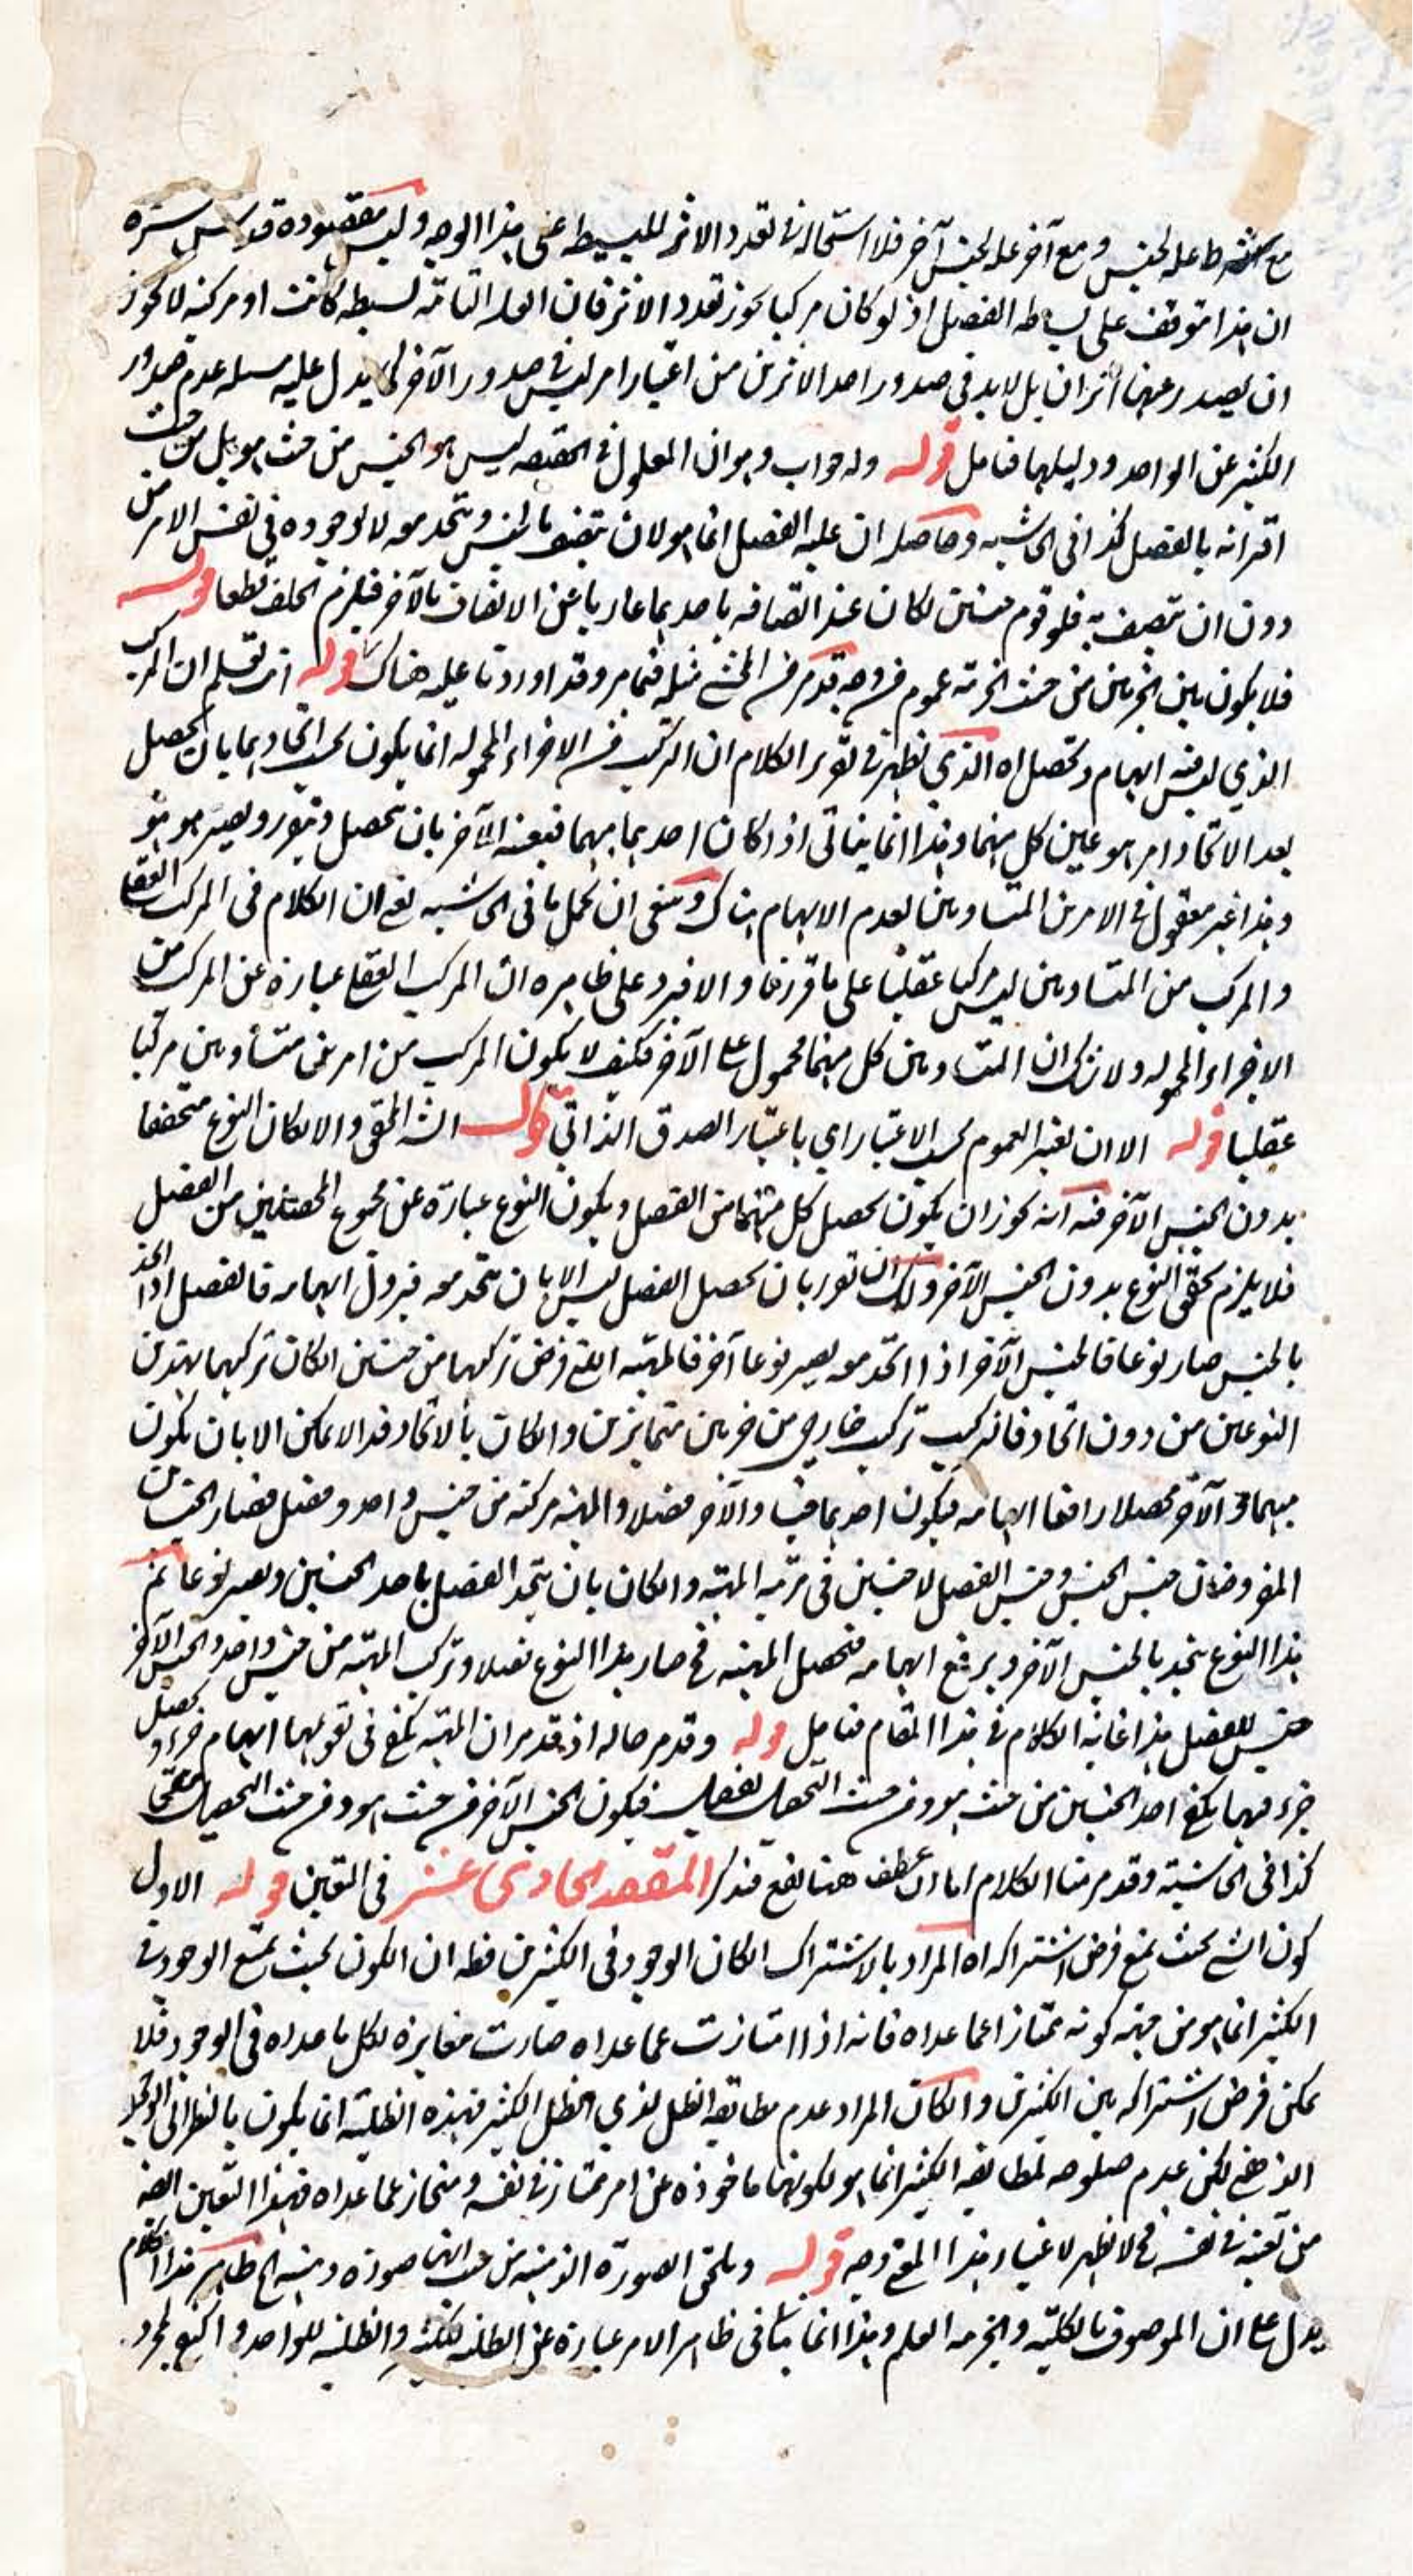 مع شرط علة لجنس ومع آخر علة لجنس آخر فلا استحالة في تعدد الاثر للبسيط على هذا الوجه وليس مقصوده قدس سره
ان هذا متوقف على بساطه الفصل اذ لو كان مركبا يجوز تعدد الاثر فان العلة التامة بسيطه كانت او مركبه لا يجوز
ان يصدر عنها اثران بل لا بد في صدور احد الاثرين من اعتبار امر ليس في صدور الآخر كما يدل عليه مسئله عدم صدور
الكثير عن الواحد ودليلها فتامل قوله وله جواب وهو ان المعلول في الحقيقه ليس هو الجنس من حيث هو بل من حيث
اقترانه بالفصل كذا في الحاشيه وحاصله ان علية الفصل انما هو لان يتصف بالجنس ويتحد معه لا لوجوده في نفس الامر من
دون ان يتصف به فلو قوم جنسين لكان عند اتصافه باحدهما عاريا عن الاتصاف بالآخر فيلزم الخلف قطعا قوله
فلا يكون بين الجزئين من حيث الجزئية عموم من وجه قد مر من المحشي مثله فيما مر وقد اوردنا عليه هناك قوله انت تعلم ان المركب
الذي ليس فيه ابهام وتحصل اه الذي يظهر في تقرير الكلام ان التركيب من الاجزاء المحموله انما يكون بحسب اتحادهما بان يحصل
بعد الاتحاد امر هو عين كل منهما وهذا انما يتاتى اذا كان احدهما مبهما فيعينه الآخر بان يتحصل ويتقرر ويصير هو هو
وهذا غير معقول في الامرين المتساويين لعدم الابهام هناك وينبغي ان يحمل ما في الحاشيه يعني ان الكلام في المركب العقلي
والمركب من المتساويين ليس مركبا عقليا على ما قررنا والا فيرد على ظاهره ان المركب العقلي عبارة عن المركب من
الاجزاء المحموله ولا شك ان المتساويين كل منهما محمول على الآخر فكيف لا يكون المركب من امرين متساويين مركبا
عقليا قوله الا ان يعتبر العموم بحسب الاعتبار اي باعتبار الصدق الذاتي قال الشه المحقق والا لكان النوع متحققا
بدون الجنس الآخر فيه انه يجوز ان يكون يحصل كل منهما من الفصل ويكون النوع عبارة عن مجموع الحصتين من الفصل
فلا يلزم تحقق النوع بدون الجنس الآخر ولك ان تقرر بان تحصل الفصل ليس الا بان يتحد معه فيزول ابهامه فالفصل اذا اتحد
بالجنس صار نوعا فالجنس الآخر اذا اتحد معه يصير نوعا آخر فالمهية التي فرض تركبها من جنسين ان كان تركبها بهذين
النوعين من دون اتحاد فالتركيب تركيب خارجي من جزئين متمايزين وان كان بالاتحاد فذا لا يمكن الا بان يكون
مبهما والآخر محصلا رافعا ابهامه فيكون احدهما جنسا والآخر فصلا والمهية مركبه من جنس واحد وفصل فصار الجنسان
المفروضان جنس الجنس وجنس الفصل لا جنسين في مرتبة المهية وان كان بان يتحد الفصل باحد الجنسين ويصير نوعا ثم
هذا النوع يتحد بالجنس الآخر ويرفع ابهامه فتحصل المهية فح صار هذا النوع فصلا وتركب المهية من جنس واحد والجنس الآخر
جنس للفصل هذا غاية الكلام في هذا المقام فتامل قوله وقد مر حاله اذ قد مر ان المهية يكفي في تقومها ابهام جزء وتحصل
جزء فههنا يكفي احد الجنسين من حيث هو ومن حيث التحصل بفصله فيكون الجنس الآخر من حيث هو ومن حيث التحصيل مستغنى
كذا في الحاشية وقد مر منا الكلام اما ان عطف هنا يقع فتذكر المقصد الحادي عشر في التعين قوله الاول
كون الشيء بحيث يمنع فرض اشتراكه اه المراد بالاشتراك ان كان الوجود في الكثيرين فظه ان الكون بحيث يمتنع الوجود في
الكثير انما هو من جهة كونه ممتازا عما عداه فانه اذا امتازت عما عداه صارت مغايرة لكل ما عداه في الوجود فلا
يمكن فرض اشتراكه بين الكثيرين وان كان المراد عدم مطابقة الظل لذي الظل الكثير فهذه الظلية انما يكون بالنظر الى الوجود
الذهني لكن عدم صلوحه لمطابقة الكثير انما هو لكونها ماخوذه عن امر ممتاز في نفسه ومنحاز عما عداه فهذا التعين ايضا
من تعينه في نفسه فح لا يظهر لاعتبار هذا المعنى وجه قوله ويلحق الصورة الذهنية من حيث انها صورة ذهنيه الخ ظاهر هذا الكلام
يدل على ان الموصوف بالكلية والجزئية العلم وهذا انما يتاتى في ظاهر الامر عبارة عن الظلية للكثير والظلية للواحد